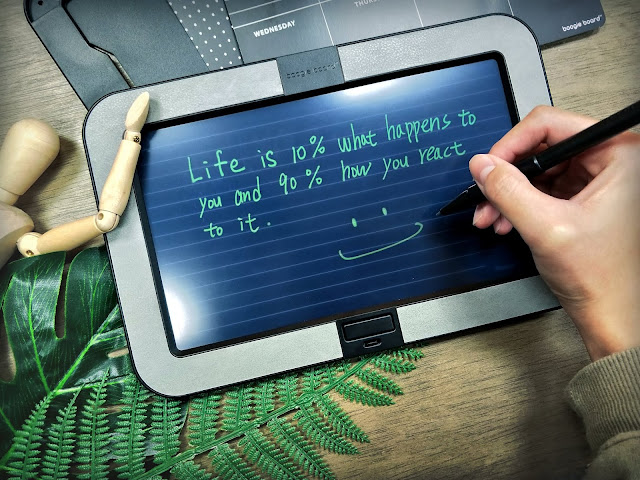 WEDNESDAY
THURS
boogie board
boogie board
Life is 10% what happens to
you and 90% how you react
to it.